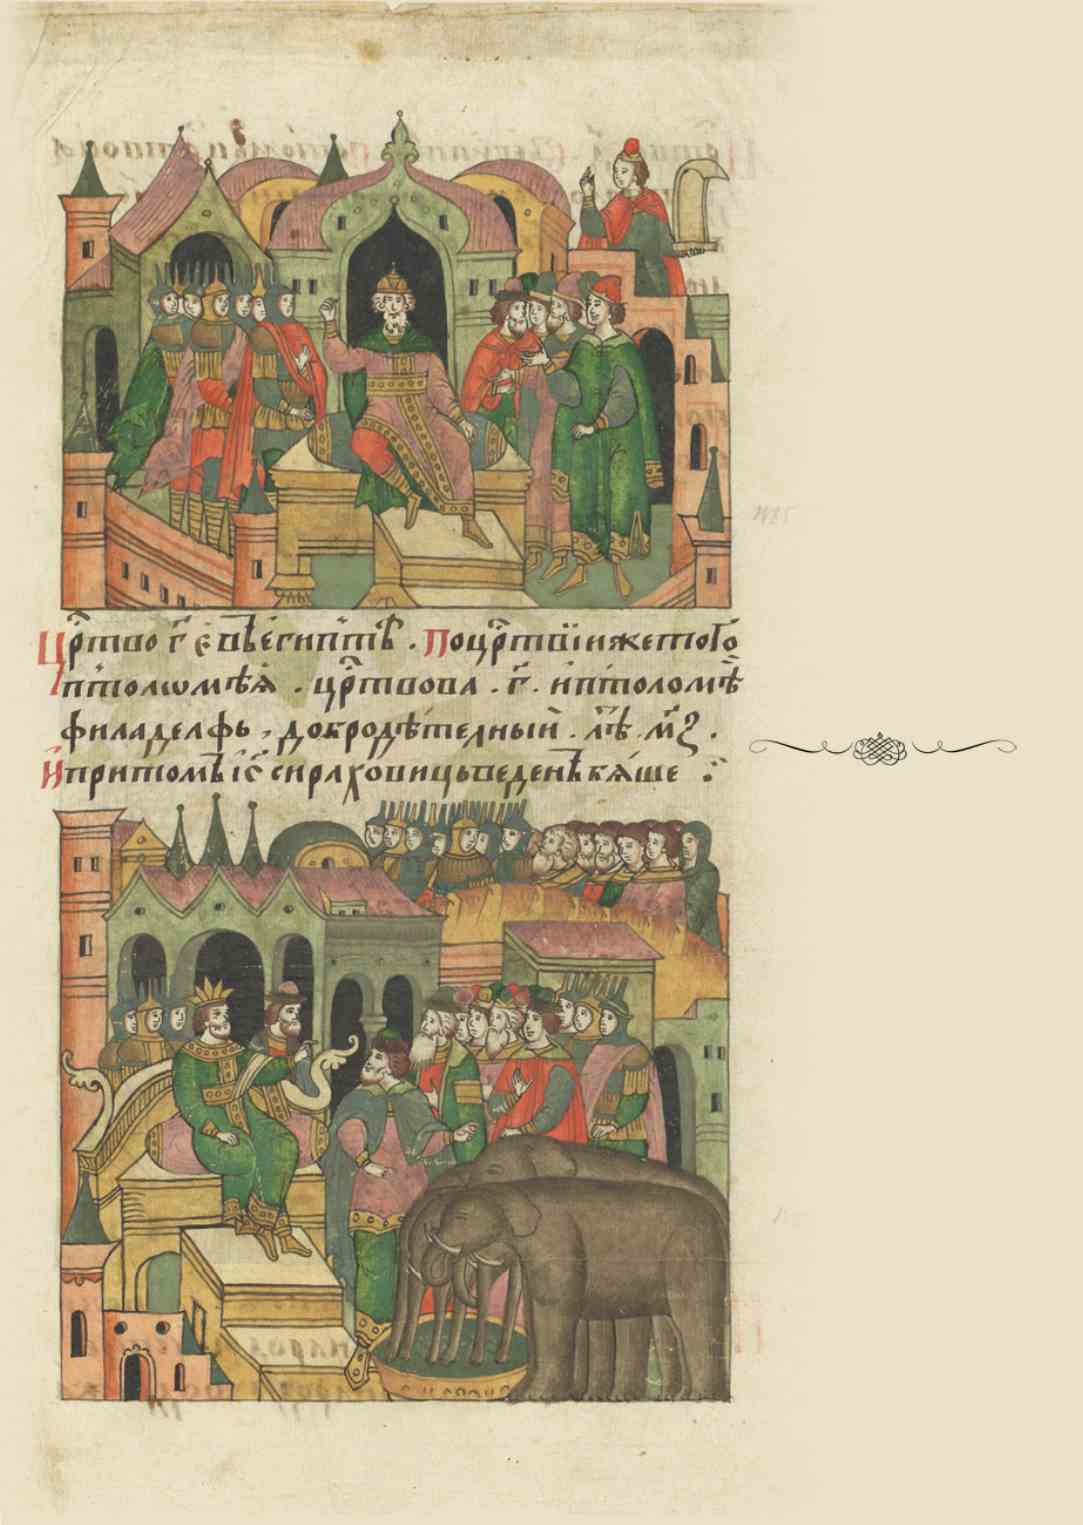 Црⷭ҇тво г҃ е҃ въ египтѣ . По црⷭ҇твїи же того
птолѡмѣѧ . црⷭ҇твова . г҃ . и птоломѣ
филаделфь , добродѣтелный . лѣⷮ . м҃з .
И при томъ іс҃ сираховиць веденъ бѧше